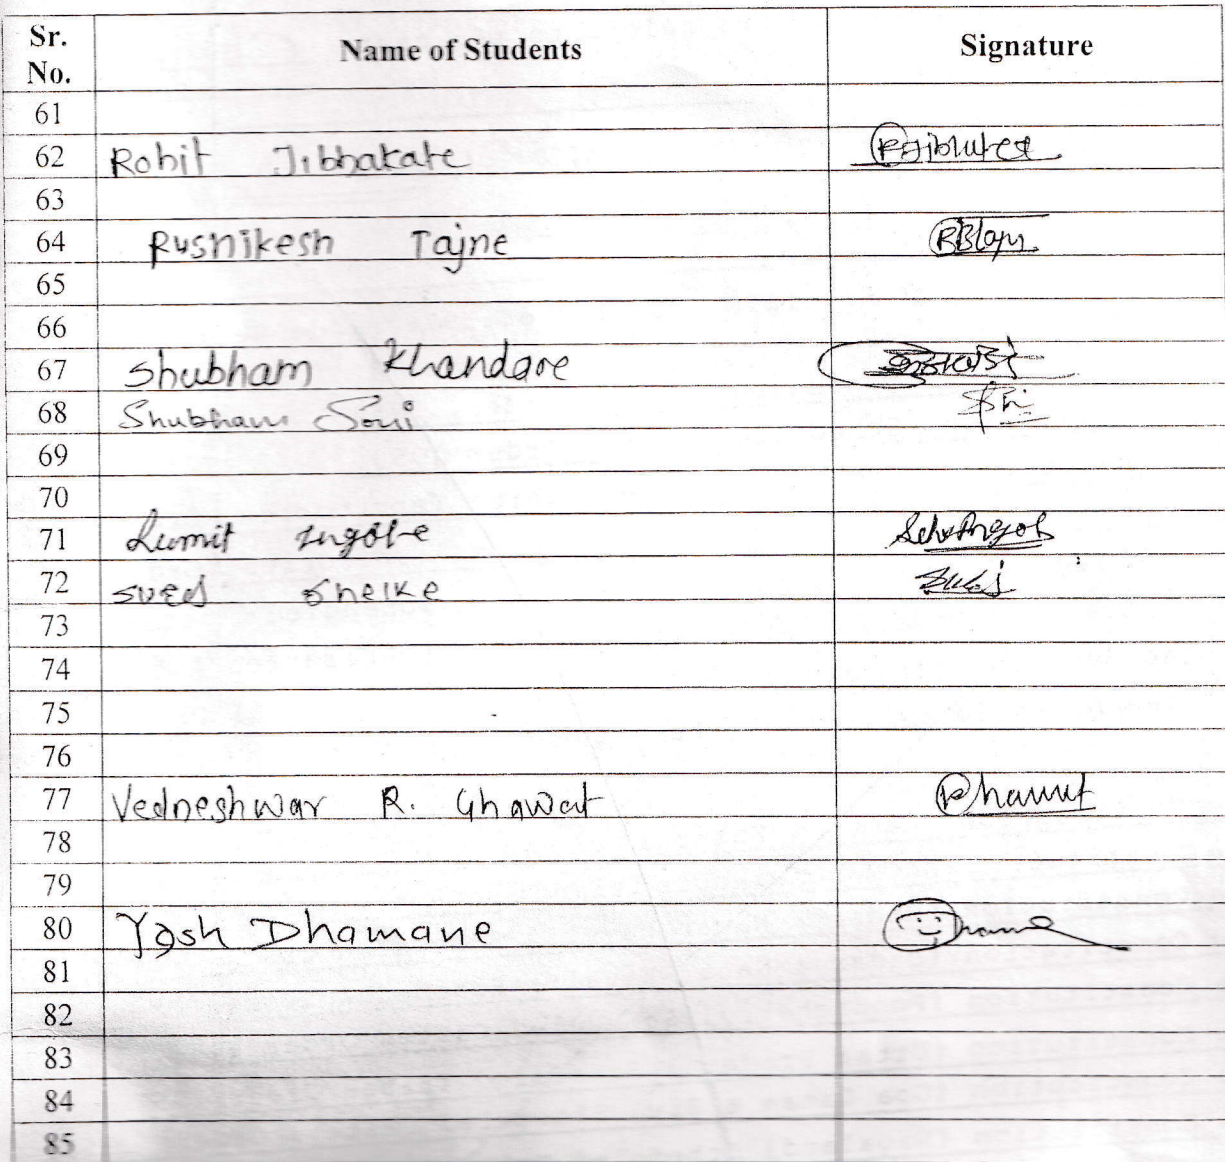 Sr. No. Name of Students Signature
61
62 Rohit Jibhakate
63
64 Rushikesh Tajne
65
66
67 Shubham Khandare
68 Shubham Soni
69
70
71 Sumit Ingole
72 Shelke
73
74
75
76
77 Vedneshwar R. Ghawat
78
79
80 Yash Dhamane
81
82
83
84
85